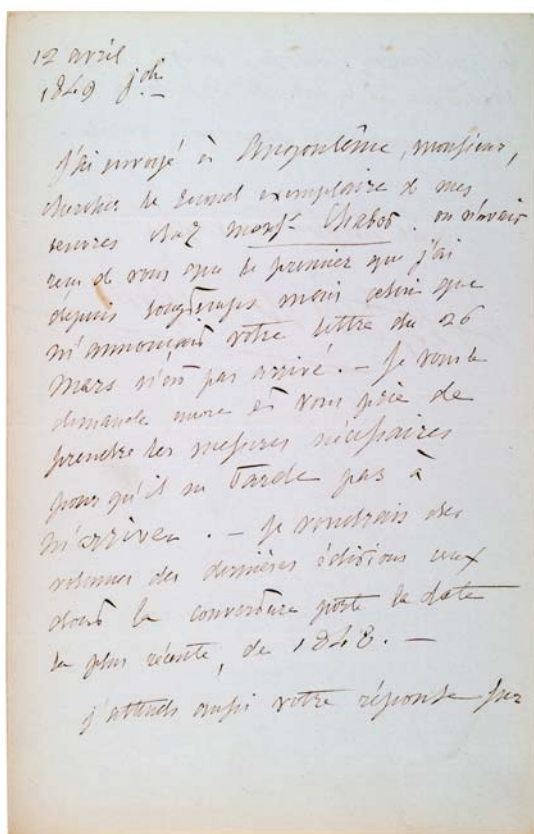 12 avril
1849 jdi
j'ai envoyé à Angoulême, monsieur,
chercher le second exemplaire de mes
œuvres chez monsr. Chabot. on n'avait
reçu de vous que le premier que j'ai
depuis longtemps mais celui que
m'annonçait votre lettre du 26
mars n'est pas arrivé. — Je vous le
demande encore et vous prie de
prendre les mesures nécessaires
pour qu'il ne tarde pas à
m'arriver. — je voudrais des
volumes des dernières éditions ceux
dont la couverture porte la date
la plus récente, de 1848. —
j'attends aussi votre réponse sur